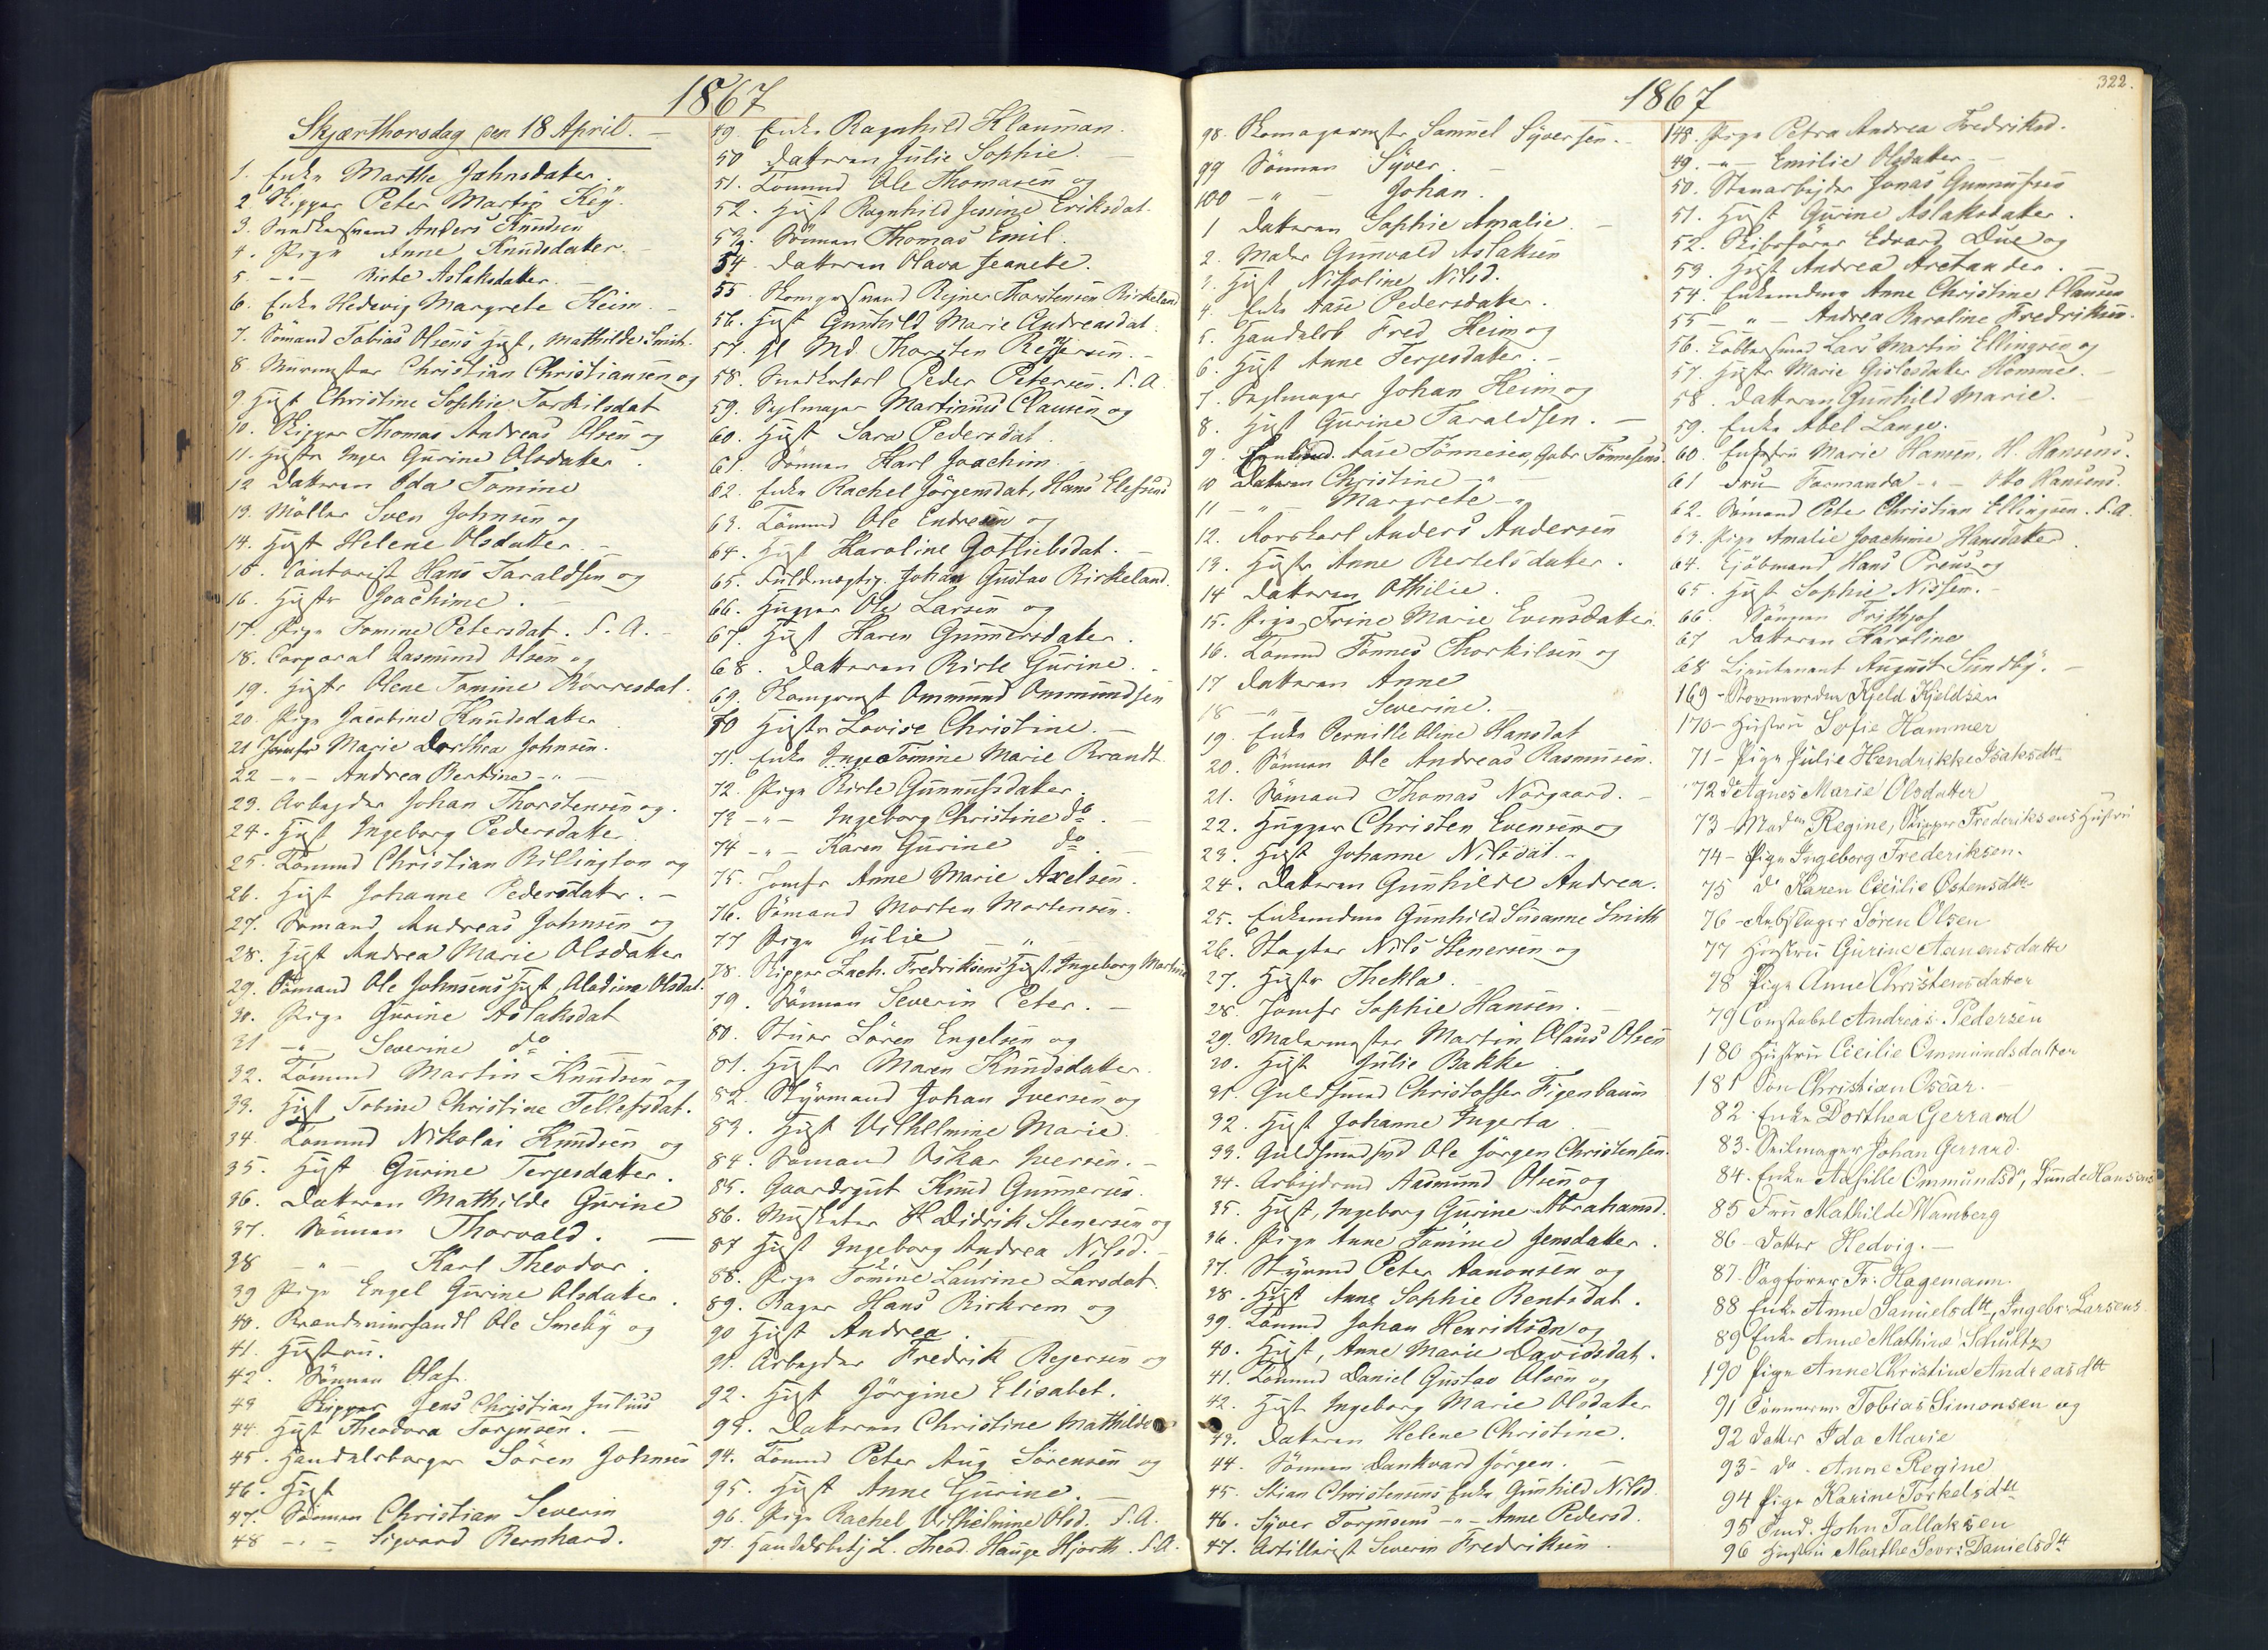 1867
Skjærthorsdag den 18 April.
1. Enke Marthe Jahnsdatter.
2 Skipper Peter Martin Keÿ.
3. Snedkersvend Anders Knudsen
4. Pige Anne Knudsdatter.
5. -"- Birte Aslaksdatter.
6. Enke Hedevig Margrete Heim
7. Sömand Tobias Olsens Hust, Mathilde Smith.
8. Murmester Christian Christiansen og
9 Hust Christine Sophie Torkilsdat
10. Skipper Thomas Andreas Olsen og
11. Hustr Inger Gurine Olsdatter.
12 Datteren Ida Tomine
13. Möller Sven Johnsen og
14. Hust Helene Olsdatter.
15. Contorist Hans Taraldsen og
16. Hustr Joachime.
17. Pige Tomine Petersdat. S. A.
18. Corporal Aasmund Olsen og
19. Hustr Olene Tomine Börresdat.
20. Pige Jacobine Knudsdatter
21 Jomfr Marie Dorthea Johnsen.
22 -"- Andrea Bertine -"-
23. Arbejder Johan Thorstensen og.
24. Hust Ingeborg Pedersdatter.
25. Tömmd Christian Billington og
26. Hust Johanne Pedersdatr.
27. Sömand Andreas Johnsen og
28. Hust Andrea Marie Olsdatter
29. Sömand Ole Johnsens Hust, Aladine Olsdat.
30. Pige Gurine Aslaksdat
31 -"- Severine do
32. Tömmd Martin Knudsen og
33. Hust Tobine Christine Tellefsdat.
34. Tömmd Nikolai Knudsen og
35. Hust Gurine Terjesdatter.
36. Datteren Mathilde Gurine
37. Sönnen Thorvald.
38 -"- Karl Theodor.
39 Pige Engel Gurine Olsdatter.
40. Brændevinshandl Ole Smeby og
41. Hustru.
42. Sönnen Olaf.
43 Skipper Jens Christian Julius
44. Hust Theodora Torjusen.
45. Handelsborger Sören Johnsen
46. Hust
47. Sönnen Christian Severin
48 -"- Sigvard Bernhard.
49. Enke Ragnhild Klauman.
50 Datteren Julie Sophie.
51. Tömmd Ole Thomasen og
52. Hust Ragnhild Jessine Eriksdat.
53. Sönnen Thomas Emil.
54. Datteren Olava Jeanette.
55. Skomgrsvend Rejner Thorstensen Birkeland
56. Hust Gunhild Marie Andreasdat.
57. Gl Md. Thorsten Rejersen.
58. Snedkerlærl Peder Petersen. S. A.
59. Sejlmager Martinus Clausen og
60. Hust Sara Pedersdat.
61. Sönnen Karl Joachim.
62. Enke Rachel Jörgensdat, Hans Elefsens
63. Tömmd Ole Endresen og
64. Hust Karoline Gotliebsdat.
65. Fuldmægtig. Johan Gustav Birkeland.
66. Hugger Ole Larsen og
67. Hust Karen Gunnersdatter.
68. Datteren Birte Gurine.
69. Skomgrmst Ommund Ommundsen
70 Hustr Lovise Christine.
71. Enke Inger Tomine Marie Brandt
72. Pige Birte Gunnufsdatter.
73 -"- Ingeborg Christine do.
74 -"- Karen Gurine do.
75. Jomfr Anne Marie Axelsen.
76. Sömand Morten Mortensen.
77 Pige Julie -"-
78. Skipper Zach. Fredriksens Hust. Ingeborg Martine
79. Sönnen Severin Peter.
80. Stuer Sören Engelsen og
81. Hustr Maren Knudsdatter.
82. Styrmand Johan Iversen og
83. Hust Vilhelmine Marie.
84. Sömand Oskar Iversen.
85. Gaardsgut Knud Gunnersen.
86. Musketer H. Didrik Stenersen og
87 Hust Ingeborg Andrea Nilsd.
88. Pige Tomine Laurine Larsdat.
89. Bager Hans Birkrem og
90 Hust Andrea.
91. Arbejder Fredrik Rejersen og
92. Hust Jörgine Elisabet.
93. Datteren Christine Mathilde
94. Tömmd Peter Aug Sörensen og
95. Hust Anne Gurine.
96. Pige Rachel Vilhelmine Olsd. S. A.
97. Handelsbetj L. Theod. Hauge Hjorth. S. A.
1867
322.
98. Skomagermstr Samuel Syversen.
99 Sönnen Syver.
100 -"- Johan.
1 Datteren Sophie Amalie.
2. Maler Gunvald Aslaksen
3. Hust Nikoline Nilsd.
4. Enke Aase Pedersdatter.
5. Handelsb Fred Heim og
6. Hust Anne Terjesdatter.
7. Sejlmager Johan Heim og
8. Hust Gurine Taraldsen.
9. Aase Tönnesen, Gabr Tönnesens
10 Datteren Christine -"-
11 -"- Margrete -"-
12. Anders Andersen
13. Hustr Anne Bertelsdatter.
14 Datteren Othilie.
15. Pige Trine Marie Evensdatter.
16. Tömmd Tönnes Thorkilsen og
17 Datteren Anne
18 -"- Severine.
19. Enke Pernille Oline Hansdat
20. Sönnen Ole Andreas Rasmusen.
21. Sömand Thomas Norgaard.
22. Hugger Christen Evensen og
23. Hust Johanne Nilsdat.
24. Datteren Gunhilde Andrea.
25. Enkemadm Gunhild Susanne Smith
26. Slagter Nils Stenersen og
27. Hustr Thekla.
28. Jomfr Sophie Hansen.
29. Malermester Martin Olaus Olsen
30. Hust Julie Bakke
31. Guldsmed Christoffer Figenbaum
32. Hust Johanne Ingerta
33. Guldsmedsvd Ole Jörgen Christensen.
34. Arbejdsmd Aasmund Olsen og
35. Hust, Ingeborg Gurine Abrahamsd.
36. Pige Anne Tomine Jensdatter.
37. Styrmd Peter Aanonsen og
38. Hust Anne Sophie Bentsdat.
39. Tömmd Johan Henriksen og
40. Hust, Anne Marie Davidsdat.
41. Tömmd Daniel Gustav Olsen og
42. Hust Ingeborg Marie Olsdatter
43. Datteren Helene Christine.
44. Sönnen Dankvard Jörgen.
45. Stian Christensens Enke Gunhild Nilsd.
46. Syver Torjusens -"- Anne Pedersd.
47. Artillerist Severin Fredriksen.
148. Pige Petra Andrea Fredriksd.
49. -"- Emilie Olsdatter
50. Stenarbejder Jonas Gunnufsen
51. Hust Gurine Aslaksdatter.
52. Skibsförer Edvard Due og
53. Hust Andrea Arctander.
54. Enkemadm Anne Christine Clausen
55 -"- Andrea Karoline Fredriksen.
56. Kobbersmed Lars Martin Ellingsen og
57. Hustr Marie Gislesdatter Homme.
58. Datteren Gunhild Marie.
59. Enke Abel Lange.
60. Enkefru Marie Hansen, H. Hansens.
61 Fru Tormanda -"- Otto Hansens.
62. Sömand Peter Christian Ellingsen. S. A.
63. Pige Amalie Joachime Hansdatter.
64. Kjöbmand Hans Preus og
65. Hust Sophie Nissen.
66. Sönnen Frithjof
67 Datteren Karoline
68 Lieutenant August Sundby.
169 - Kjeld Kjeldsen
170 - Hustru Sofie Hammer
71 - Pige Julie Hendrikke Isaksdtt
72 do Agnes Marie Olsdatter
73 - Madm Regine, Skipper Frederiksens Hustru
74 - Pige Ingeborg Frederiksen.
75 do Karen Cecilie Østensdttr
76 - Søren Olsen
77 Hustru Gurine Aanensdatter
78 Pige Anne Christensdatter
79 Constabel Andreas Pedersen
180 Hustru Cecilie Ommundsdatter
181 Søn Christian Oscar.
82 Enke Dorthea Gerrard
83. Seilmager Johan Gerrard.
84. Enke Axsille Ommundsd, Gunde Hansens
85 Fru Mathilde Wamberg
86 - Datter Hedvig.
87. Sagfører Fr. Hagemann.
88 Enke Anne Samuelsdtt, Ingebr. Larsens
89 Enke Anne Mathine Schultz
190 Pige Anne Christine Andreasdtt
91 Tobias Simonsen og
92 Datter Ida Marie
93 - do. Anne Regine
94 Pige Karine Torkelsdtt
95 John Tallaksen
96 Hustru Marthe Sevr. Danielsdtt